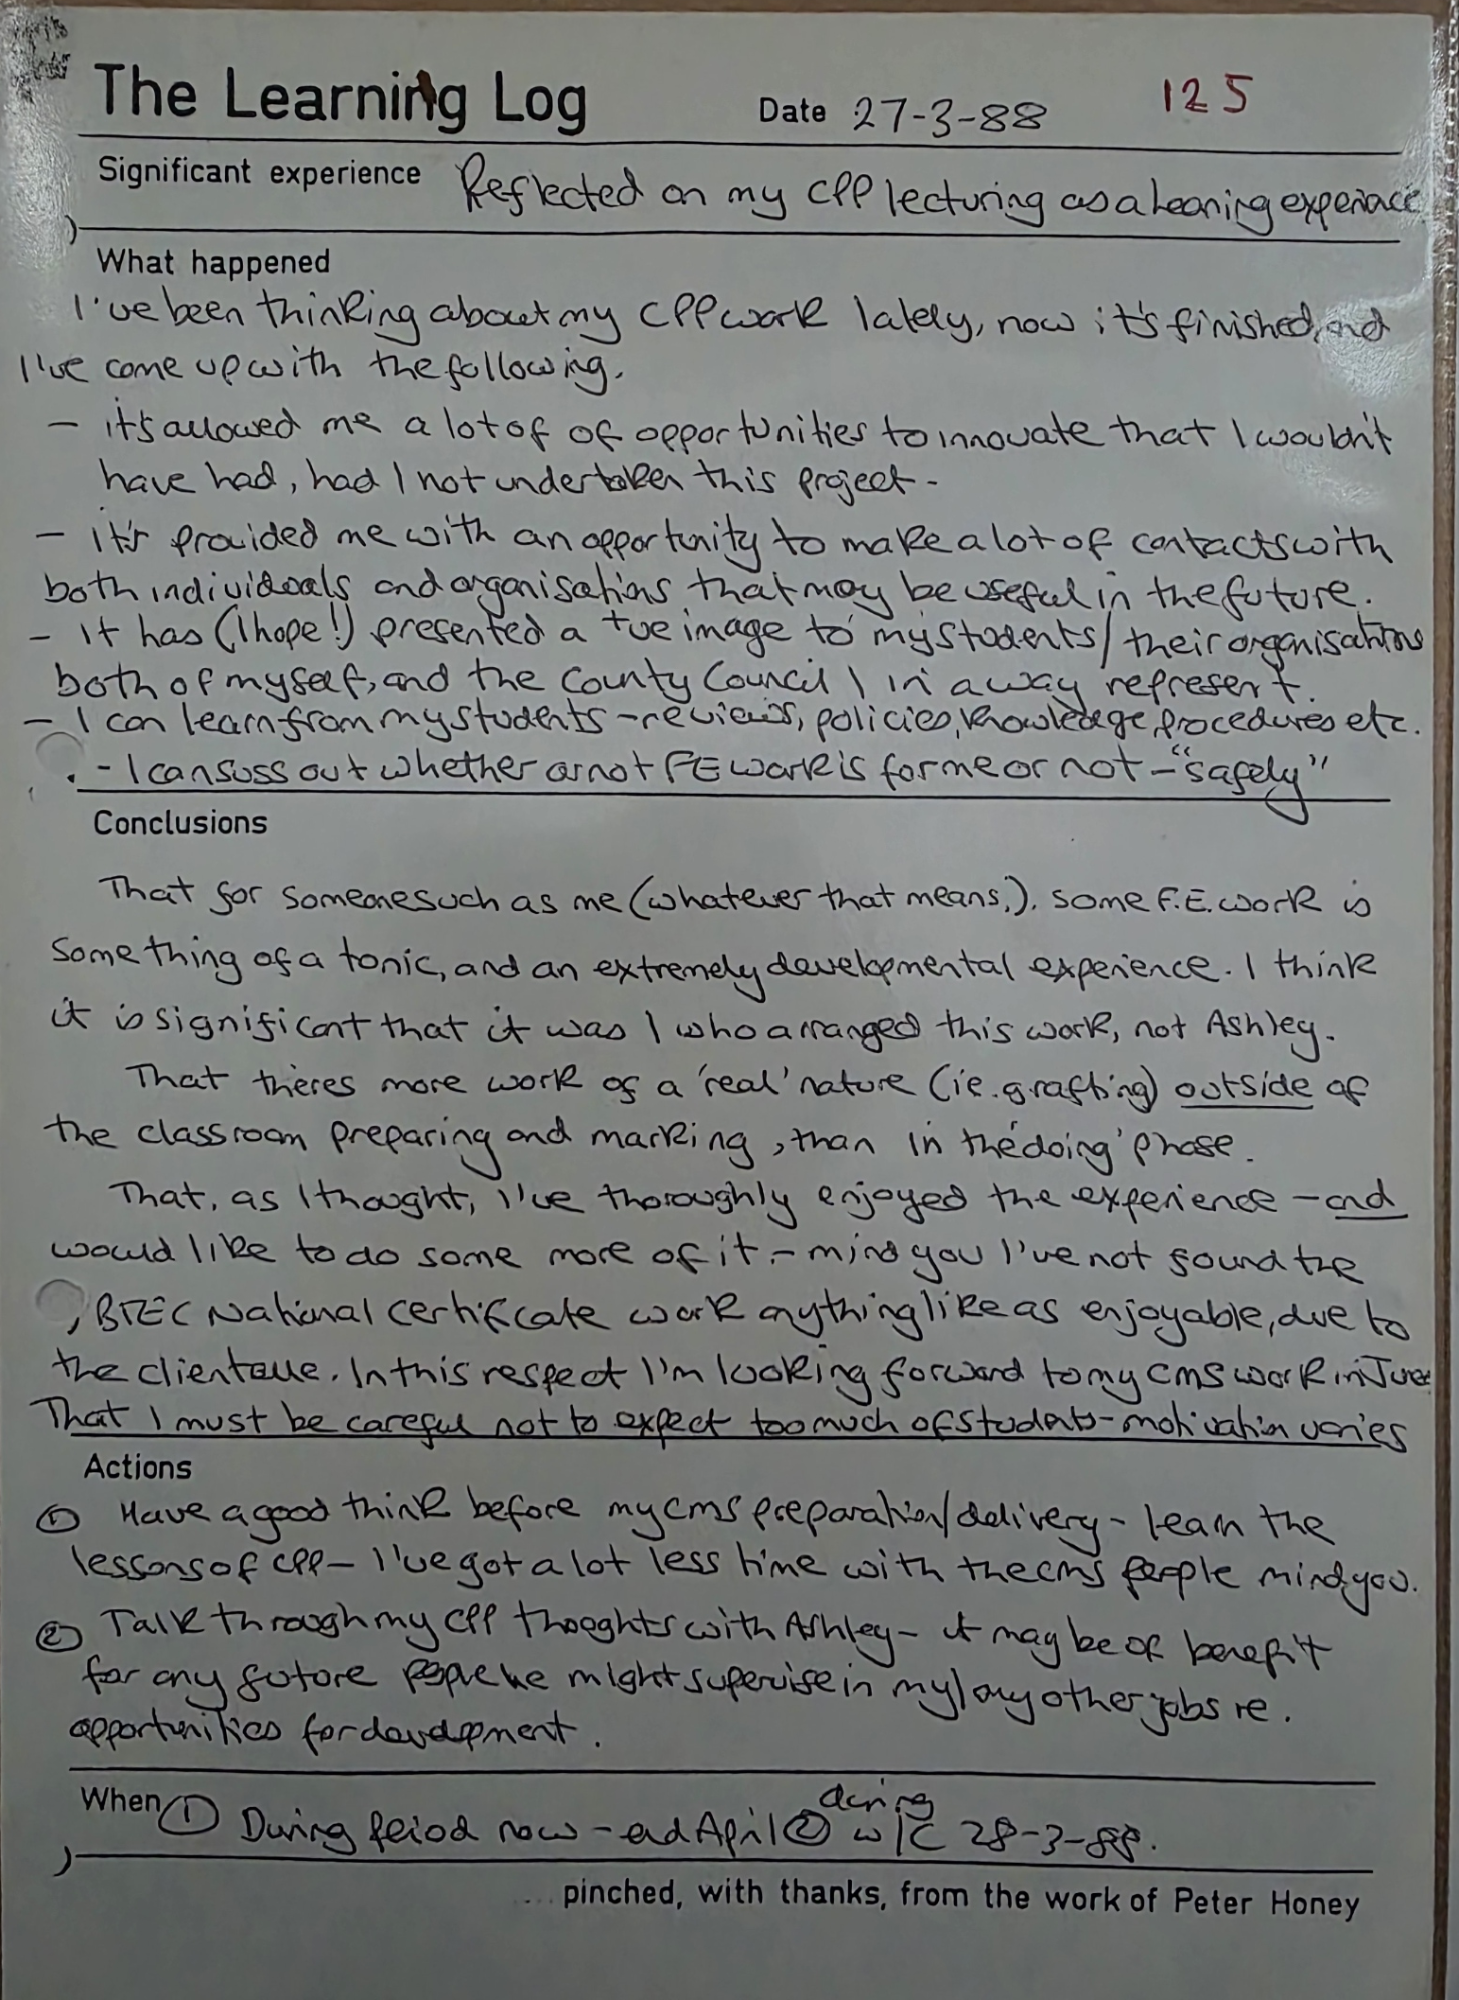 The Learning Log
Date 27-3-88
125
Significant experience Reflected on my CPP lecturing as a learning experience
What happened
I've been thinking about my CPP work lately, now it's finished, and
I've come up with the following.
- it's allowed me a lot of of opportunities to innovate that I wouldn't
have had, had I not undertaken this project -
- It's provided me with an opportunity to make a lot of contacts with
both individuals and organisations that may be useful in the future.
- It has (I hope!) presented a +ve image to my students/their organisations
both of myself, and the County Council I in a way represent.
- I can learn from my students - reviews, policies, knowledge, procedures etc.
- I can suss out whether or not FE work is for me or not - "safely"
Conclusions
That for someone such as me (whatever that means,). some F.E. work is
something of a tonic, and an extremely developmental experience. I think
it is significant that it was I who arranged this work, not Ashley.
That theres more work of a 'real' nature (ie. grafting) outside of
the classroom preparing and marking, than in the 'doing' phase.
That, as I thought, I've thoroughly enjoyed the experience - and
would like to do some more of it - mind you I've not found the
BTEC National Certificate work anything like as enjoyable, due to
the clientelle. In this respect I'm looking forward to my CMS work in June
That I must be careful not to expect too much of students - motivation varies
Actions
① Have a good think before my CMS preparation/delivery - learn the
lessons of CPP - I've got a lot less time with the CMS people mind you.
② Talk through my CPP thoughts with Ashley - it may be of benefit
for any future people he might supervise in my/any other jobs re.
opportunities for development.
When ① During period now - end April ② during w/c 28-3-88.
... pinched, with thanks, from the work of Peter Honey